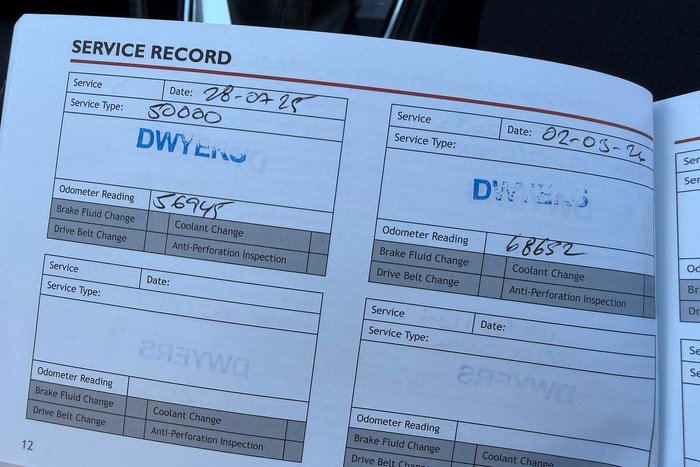 SERVICE RECORD
Service Date: 28-07-25
Service Type: 50000
DWYERS
Odometer Reading 56945
Brake Fluid Change Coolant Change
Drive Belt Change Anti-Perforation Inspection
Service Date: 02-03-24
Service Type:
DWYERS
Odometer Reading 68652
Brake Fluid Change Coolant Change
Drive Belt Change Anti-Perforation Inspection
Service Date:
Service Type:
DWYERS
Odometer Reading
Brake Fluid Change Coolant Change
Drive Belt Change Anti-Perforation Inspection
Service Date:
Service Type:
DWYERS
Odometer Reading
Brake Fluid Change Coolant Change
Drive Belt Change Anti-Perforation Inspection
12